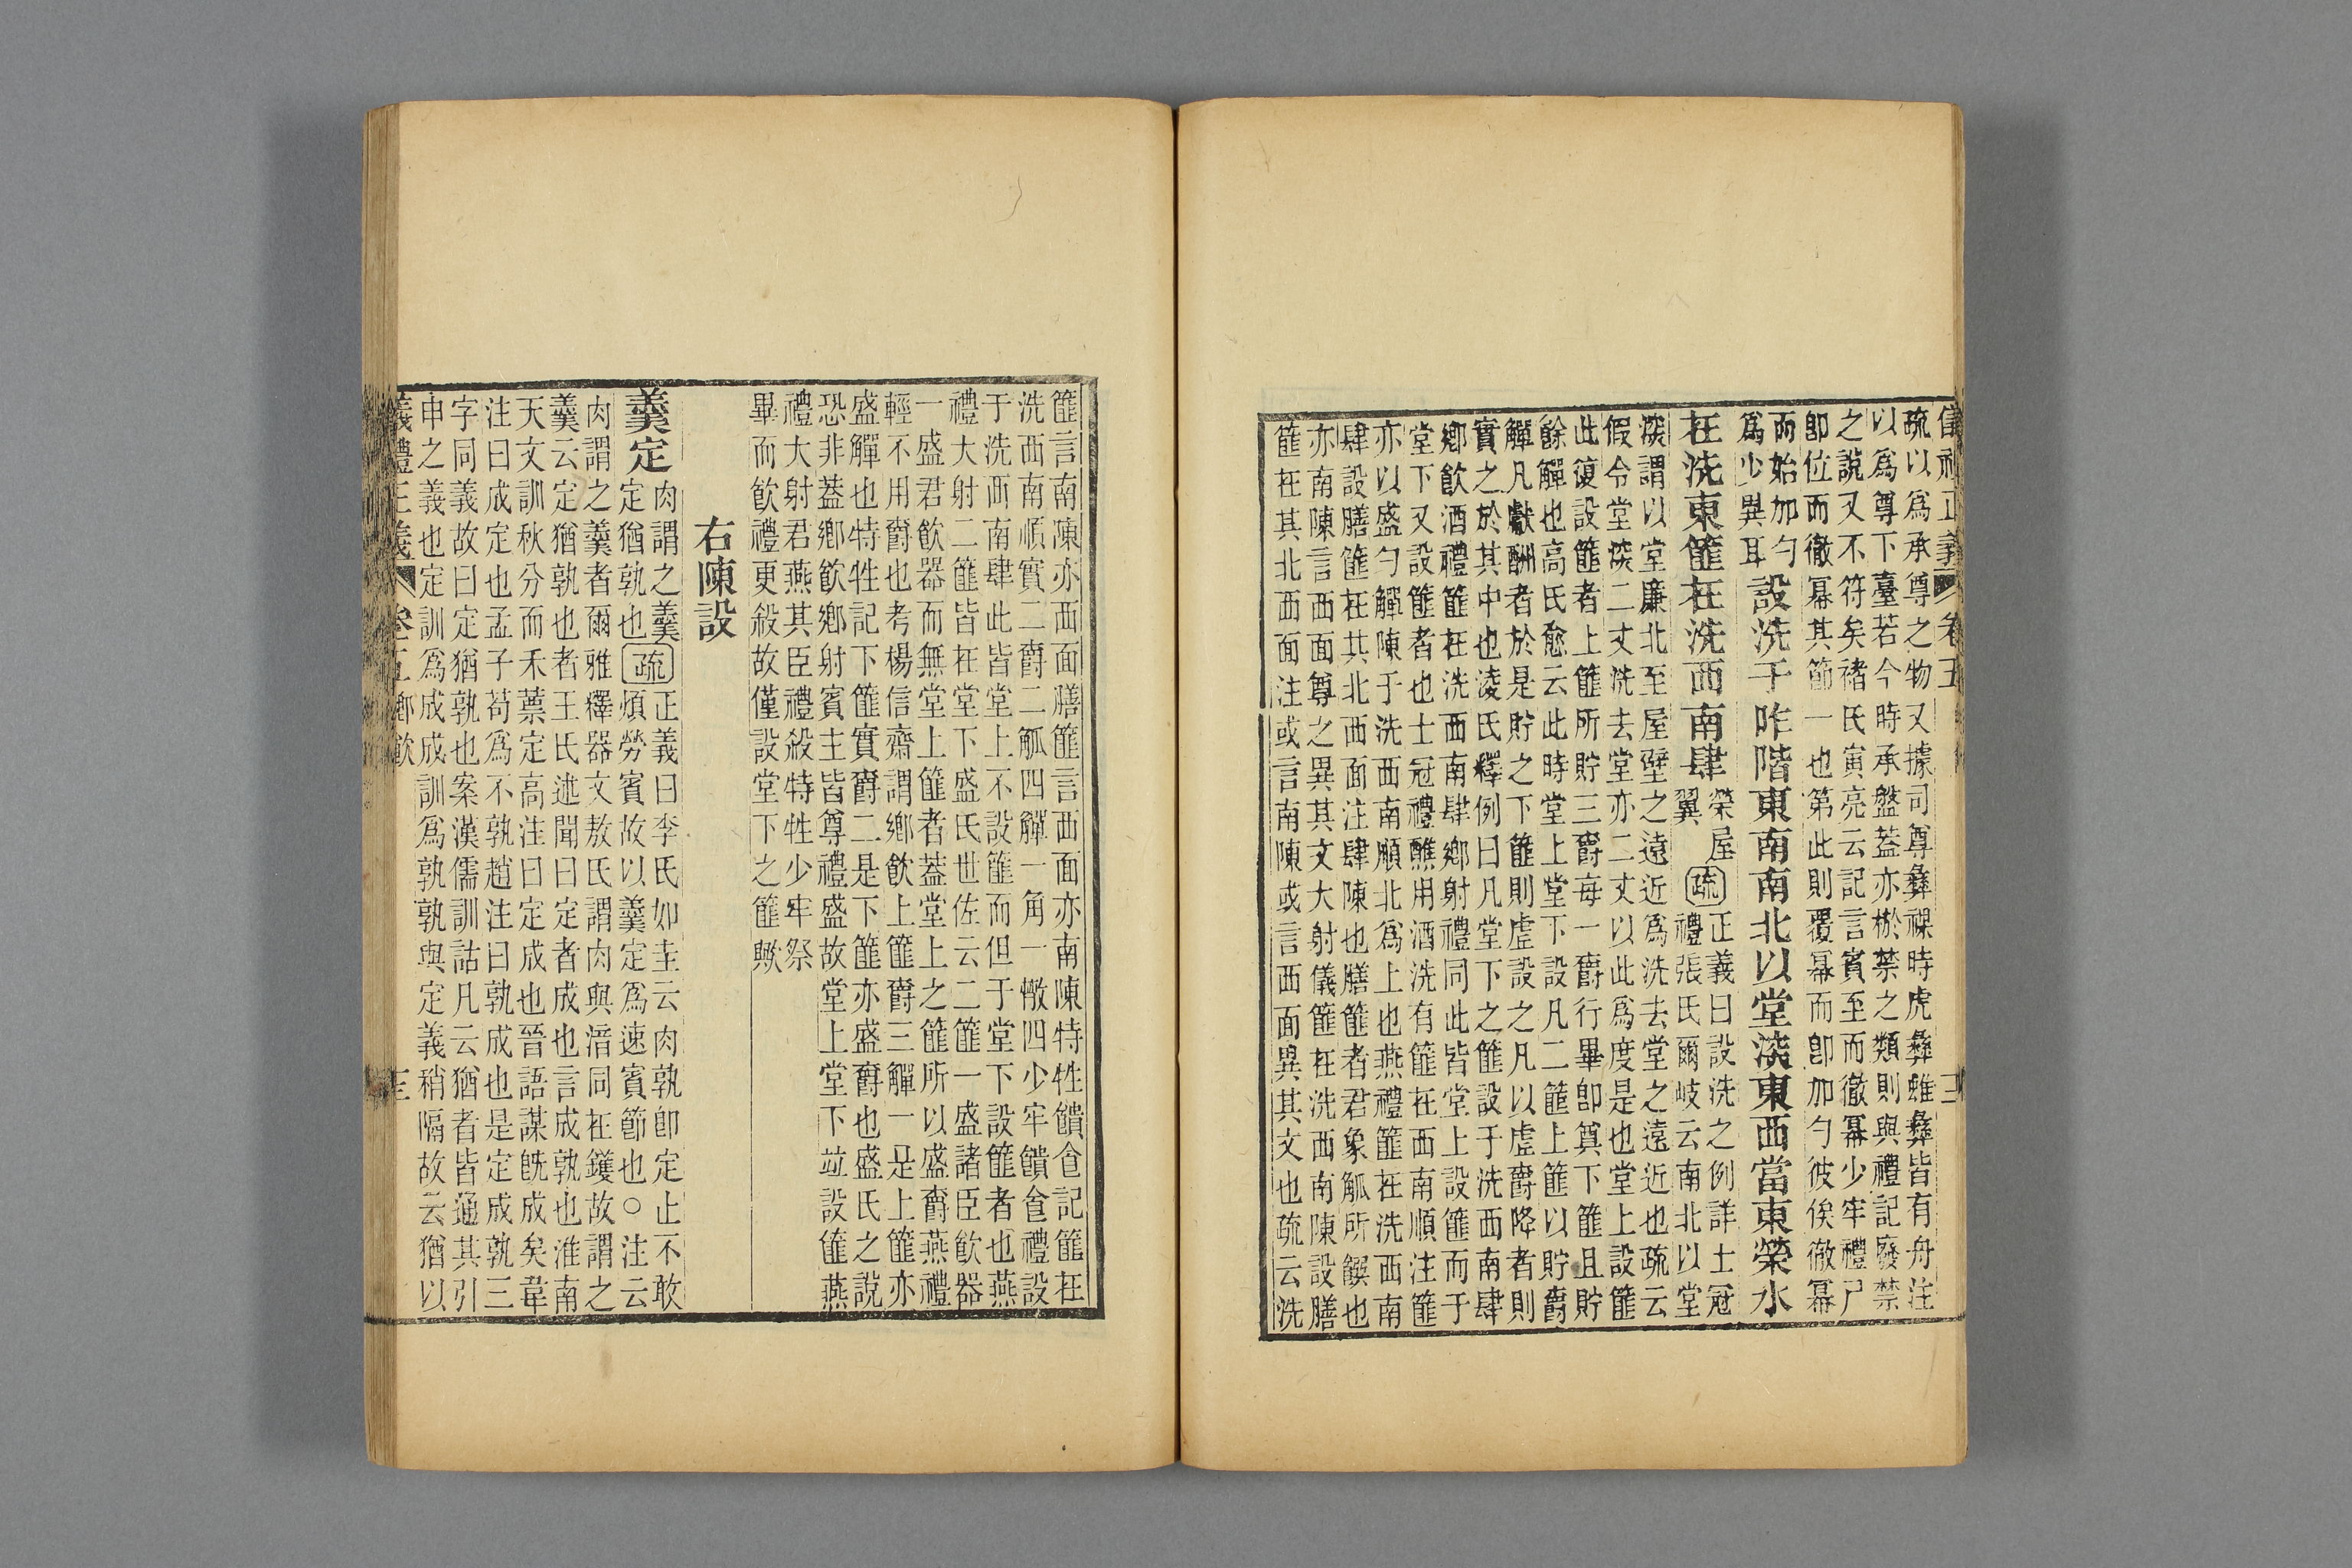 疏以爲承尊之物又據司尊彝祼時虎彝蜼彝皆有舟注
以爲尊下臺若今時承盤蓋亦棜禁之類則與禮記廢禁
之說又不符矣褚氏寅亮云記言賓至而徹冪少牢禮尸
卽位而徹冪其節一也第此則覆冪而卽加勺彼俟徹冪
而始加勺
爲少異耳
設洗于阼階東南南北以堂深東西當東榮水
在洗東篚在洗西南肆
榮屋
翼
疏
正義曰設洗之例詳士冠
禮張氏爾岐云南北以堂
深謂以堂廉北至屋壁之遠近爲洗去堂之遠近也疏云
假令堂深二丈洗去堂亦二丈以此爲度是也堂上設篚
此復設篚者上篚所貯三爵每一爵行畢卽奠下篚且貯
餘觶也高氏愈云此時堂上堂下設凡二篚上篚以貯爵
觶凡獻酬者於是貯之下篚則虛設之凡以虛爵降者則
實之於其中也淩氏釋例曰凡堂下之篚設于洗西南肆
鄉飮酒禮篚在洗西南肆鄉射禮同此皆堂上設篚而于
堂下又設篚者也士冠禮醮用酒洗有篚在西南順注篚
亦以盛勺觶陳于洗西南順北爲上也燕禮篚在洗西南
肆設膳篚在其北西面注肆陳也膳篚者君象觚所饌也
亦南陳言西面尊之異其文大射儀篚在洗西南陳設膳
篚在其北西面注或言南陳或言西面異其文也疏云洗
篚言南陳亦西面膳篚言西面亦南陳特牲饋食記篚在
洗西南順實二爵二觚四觶一角一散四少牢饋食禮設
于洗西南肆此皆堂上不設篚而但于堂下設篚者也燕
禮大射二篚皆在堂下盛氏世佐云二篚一盛諸臣飮器
一盛君飮器而無堂上篚者蓋堂上之篚所以盛爵燕禮
輕不用爵也考楊信齋謂鄉飮上篚爵三觶一是上篚亦
盛觶也特牲記下篚實爵二是下篚亦盛爵也盛氏之說
恐非蓋鄉飮鄉射賓主皆尊禮盛故堂上堂下竝設篚燕
禮大射君燕其臣禮殺特牲少牢祭
畢而飮禮更殺故僅設堂下之篚歟
右陳設
羹定
肉謂之羹
定猶孰也
疏
正義曰李氏如圭云肉孰卽定止不敢
煩勞賓故以羹定爲速賓節也○注云
肉謂之羹者爾雅釋器文敖氏謂肉與湆同在鑊故謂之
羹云定猶孰也者王氏述聞曰定者成也言成孰也淮南
天文訓秋分而禾蔈定高注曰定成也晉語謀旣成矣韋
注曰成定也孟子苟爲不孰趙注曰孰成也是定成孰三
字同義故曰定猶孰也案漢儒訓詁凡云猶者皆通其引
申之義也定訓爲成成訓爲孰孰與定義稍隔故云猶以